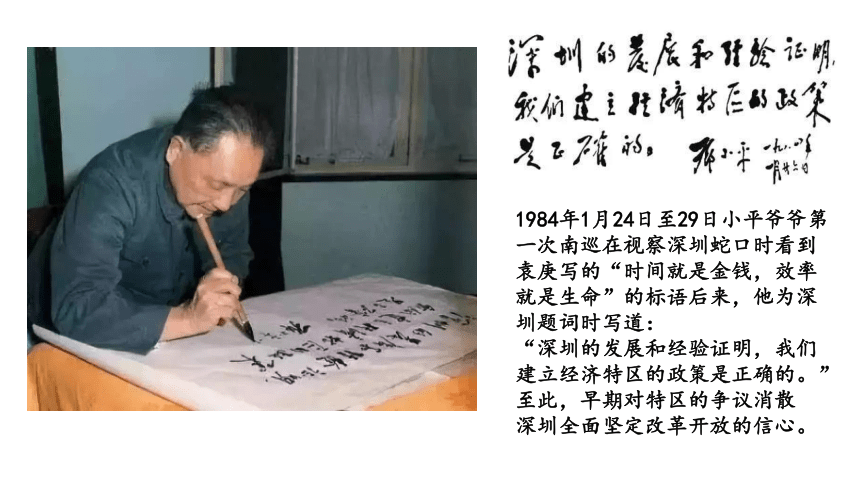 深圳的发展和经验证明，
我们建立经济特区的政策
是正确的。 邓小平 一九八四年
一月廿六日
1984年1月24日至29日小平爷爷第
一次南巡在视察深圳蛇口时看到
袁庚写的“时间就是金钱，效率
就是生命”的标语后来，他为深
圳题词时写道：
“深圳的发展和经验证明，我们
建立经济特区的政策是正确的。”
至此，早期对特区的争议消散
深圳全面坚定改革开放的信心。